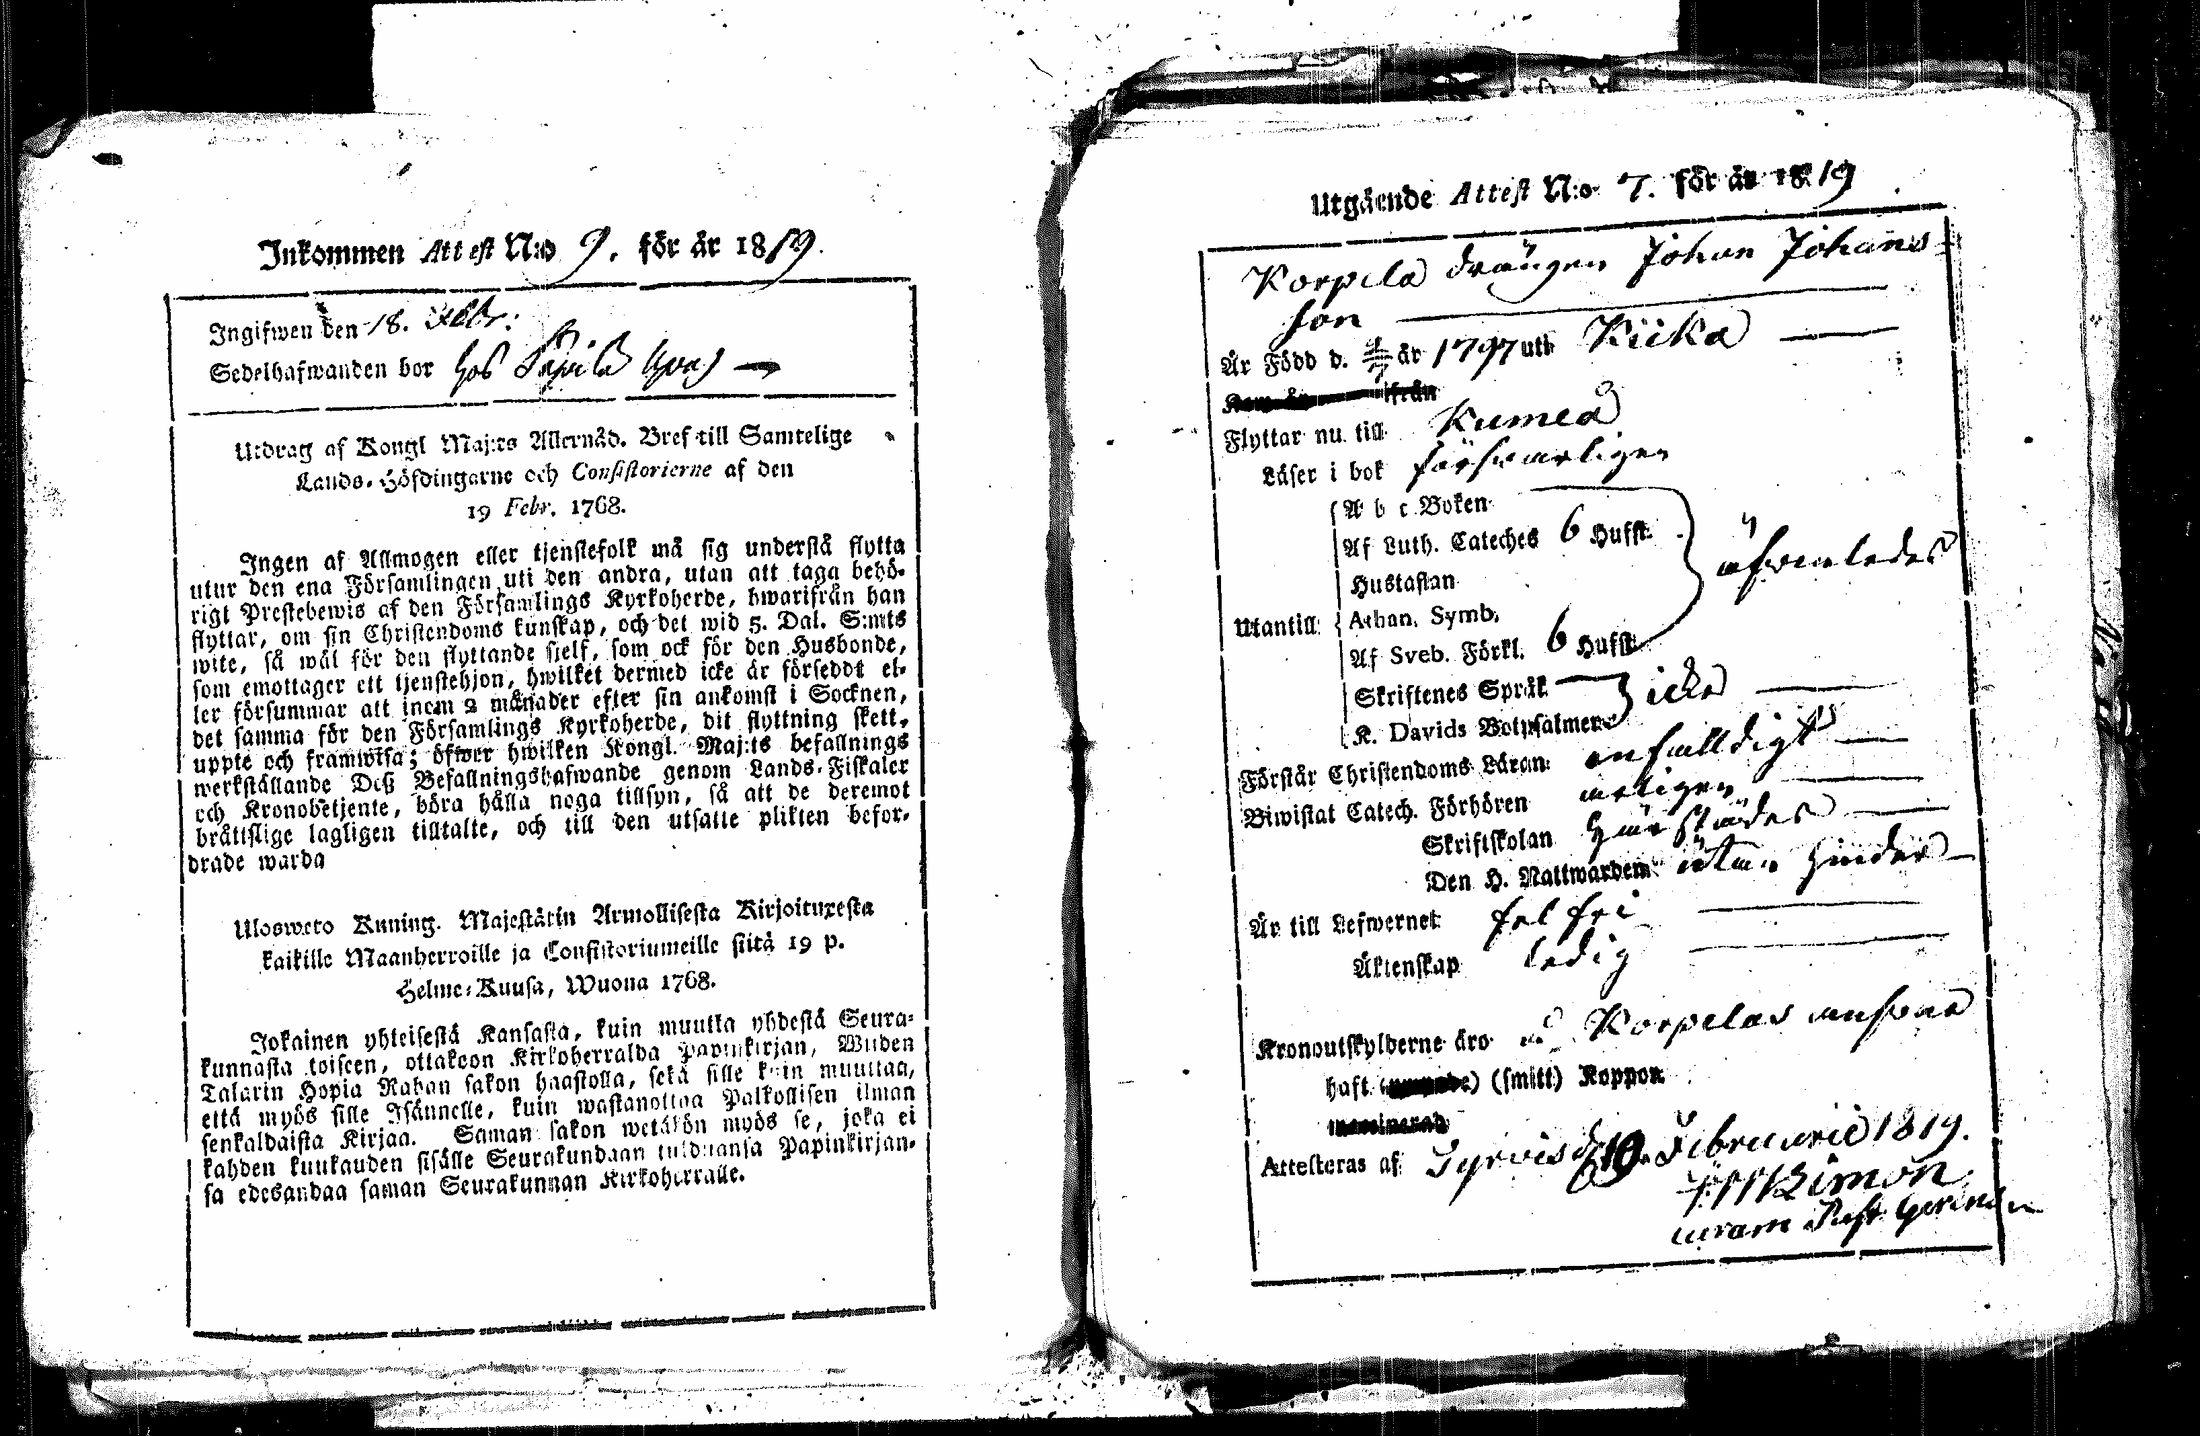 Inkommen Attest N:o 9. för år 1819.
Ingifwen den 18. Febr:
Sedelhafwanden bor hos
Utdrag af Kongl Maj:ts Allernåd. Bref till Samtelige
Lands-Höfdingarne och Consistorierne af den
19 Febr. 1768.
Ingen af Allmogen eller tjenstefolk må sig understå flytta
utur den ena Församlingen uti den andra, utan att taga behö-
rigt Prestebewis af den Församlings Kyrkoherde, hwarifrån han
flyttar, om sin Christendoms kunskap, och det wid 5. Dal. S:mts
wite, så wäl för den flyttande sjelf, som ock för den Husbonde,
som emottager ett tjenstehjon, hwilket dermed icke är förseddt el-
ler försummar att inom 2 månader efter sin ankomst i Socknen,
det samma för den Församlings Kyrkoherde, dit flyttning skett,
uppte och framwisa; öfwer hwilken Kongl. Maj:ts befallnings
werkställande Deß Befallningshafwande genom Lands-Fiskaler
och Kronobetjente, böra hålla noga tillsyn, så att de deremot
bråttslige lagligen tilltalte, och till den utsatte plikten befor-
drade warda
Ulosweto Kuning. Majestätin Armollisesta Kirjoituxesta
kaikille Maanherroille ja Consistoriumeille siitä 19 p.
Helme-Kuusa, Wuona 1768.
Jokainen yhteisestä Kansasta, kuin muutta yhdestä Seura-
kunnasta toiseen, ottakoon Kirkoherralda Papinkirjan, Wiiden
Talarin Hopia Rahan sakon haastolla, sekä sille kuin muuttaa,
että myös sille Isännelle, kuin wastanottaa Palkollisen ilman
senkaldaista Kirjaa. Saman sakon wetäkön myös se, joka ei
kahden kuukauden sisälle Seurakundaan tulduansa Papinkirjan-
sa edesandaa saman Seurakunnan Kirkoherralle.
Utgående Attest N:o 7. för år 1819
Korpela drängen Johan Johans-
son
Är Född d. år 1797 uti Kiika
ifrån
Flyttar nu till Kumeå
Läser i bok försvarligen
A b c Boken
Af Luth. Cateches 6 Hufst:
Hustaflan
äfwenledes
Utantill: Athan. Symb.
Af Sveb. Förkl. 6 Hufst:
Skriftenes Språk
icke
K. Davids Botpsalmer
Förstår Christendoms Läran: enfalldigt
Biwistat Catech. Förhören årligen
Skriftskolan härstädes
Den H. Nattwarden utan hinder
Är till Lefwernet felfri
Äktenskap ledig
Kronoutskylderne äro å Korpelas ansvar
haft (smitt) Koppor
Attesteras af Tyrvis d. 10 Februarii 1819.